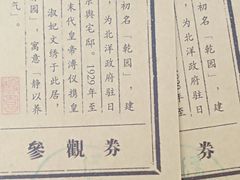 初名「乾园」，建
为北洋政府驻日
舆宅邸。1929年至
末代皇帝溥仪携皇
淑妃文绣于此居，
园」，寓意「静以养
气。
參觀券
初名「乾园」，建
为北洋政府驻日
參觀券